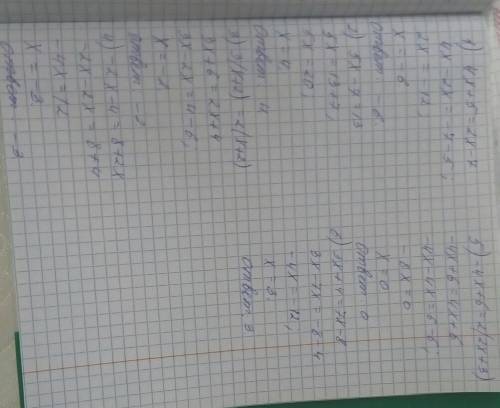 1) 4x+6=2x-6
4x-2x=-6-6.
2x=-12
x=-6
Ответ -6
2) 5x-7=13
5x=13+7.
5x=20
x=4
Ответ 4
3) 3(x+2)=2(x+2)
3x+6=2x+4
3x-2x=4-6.
x=-2
Ответ -2
4) -2x-4=8+2x
-2x-2x=8+4
-4x=12
x=-3
Ответ -3
5) -4x+6=2(2x+3)
-4x+6=4x+6
-4x-4x=6-6.
-8x=0
x=0
Ответ 0
6) 3x+4=7x-8
3x-7x=-8-4
-4x=-12.
x=3
Ответ 3